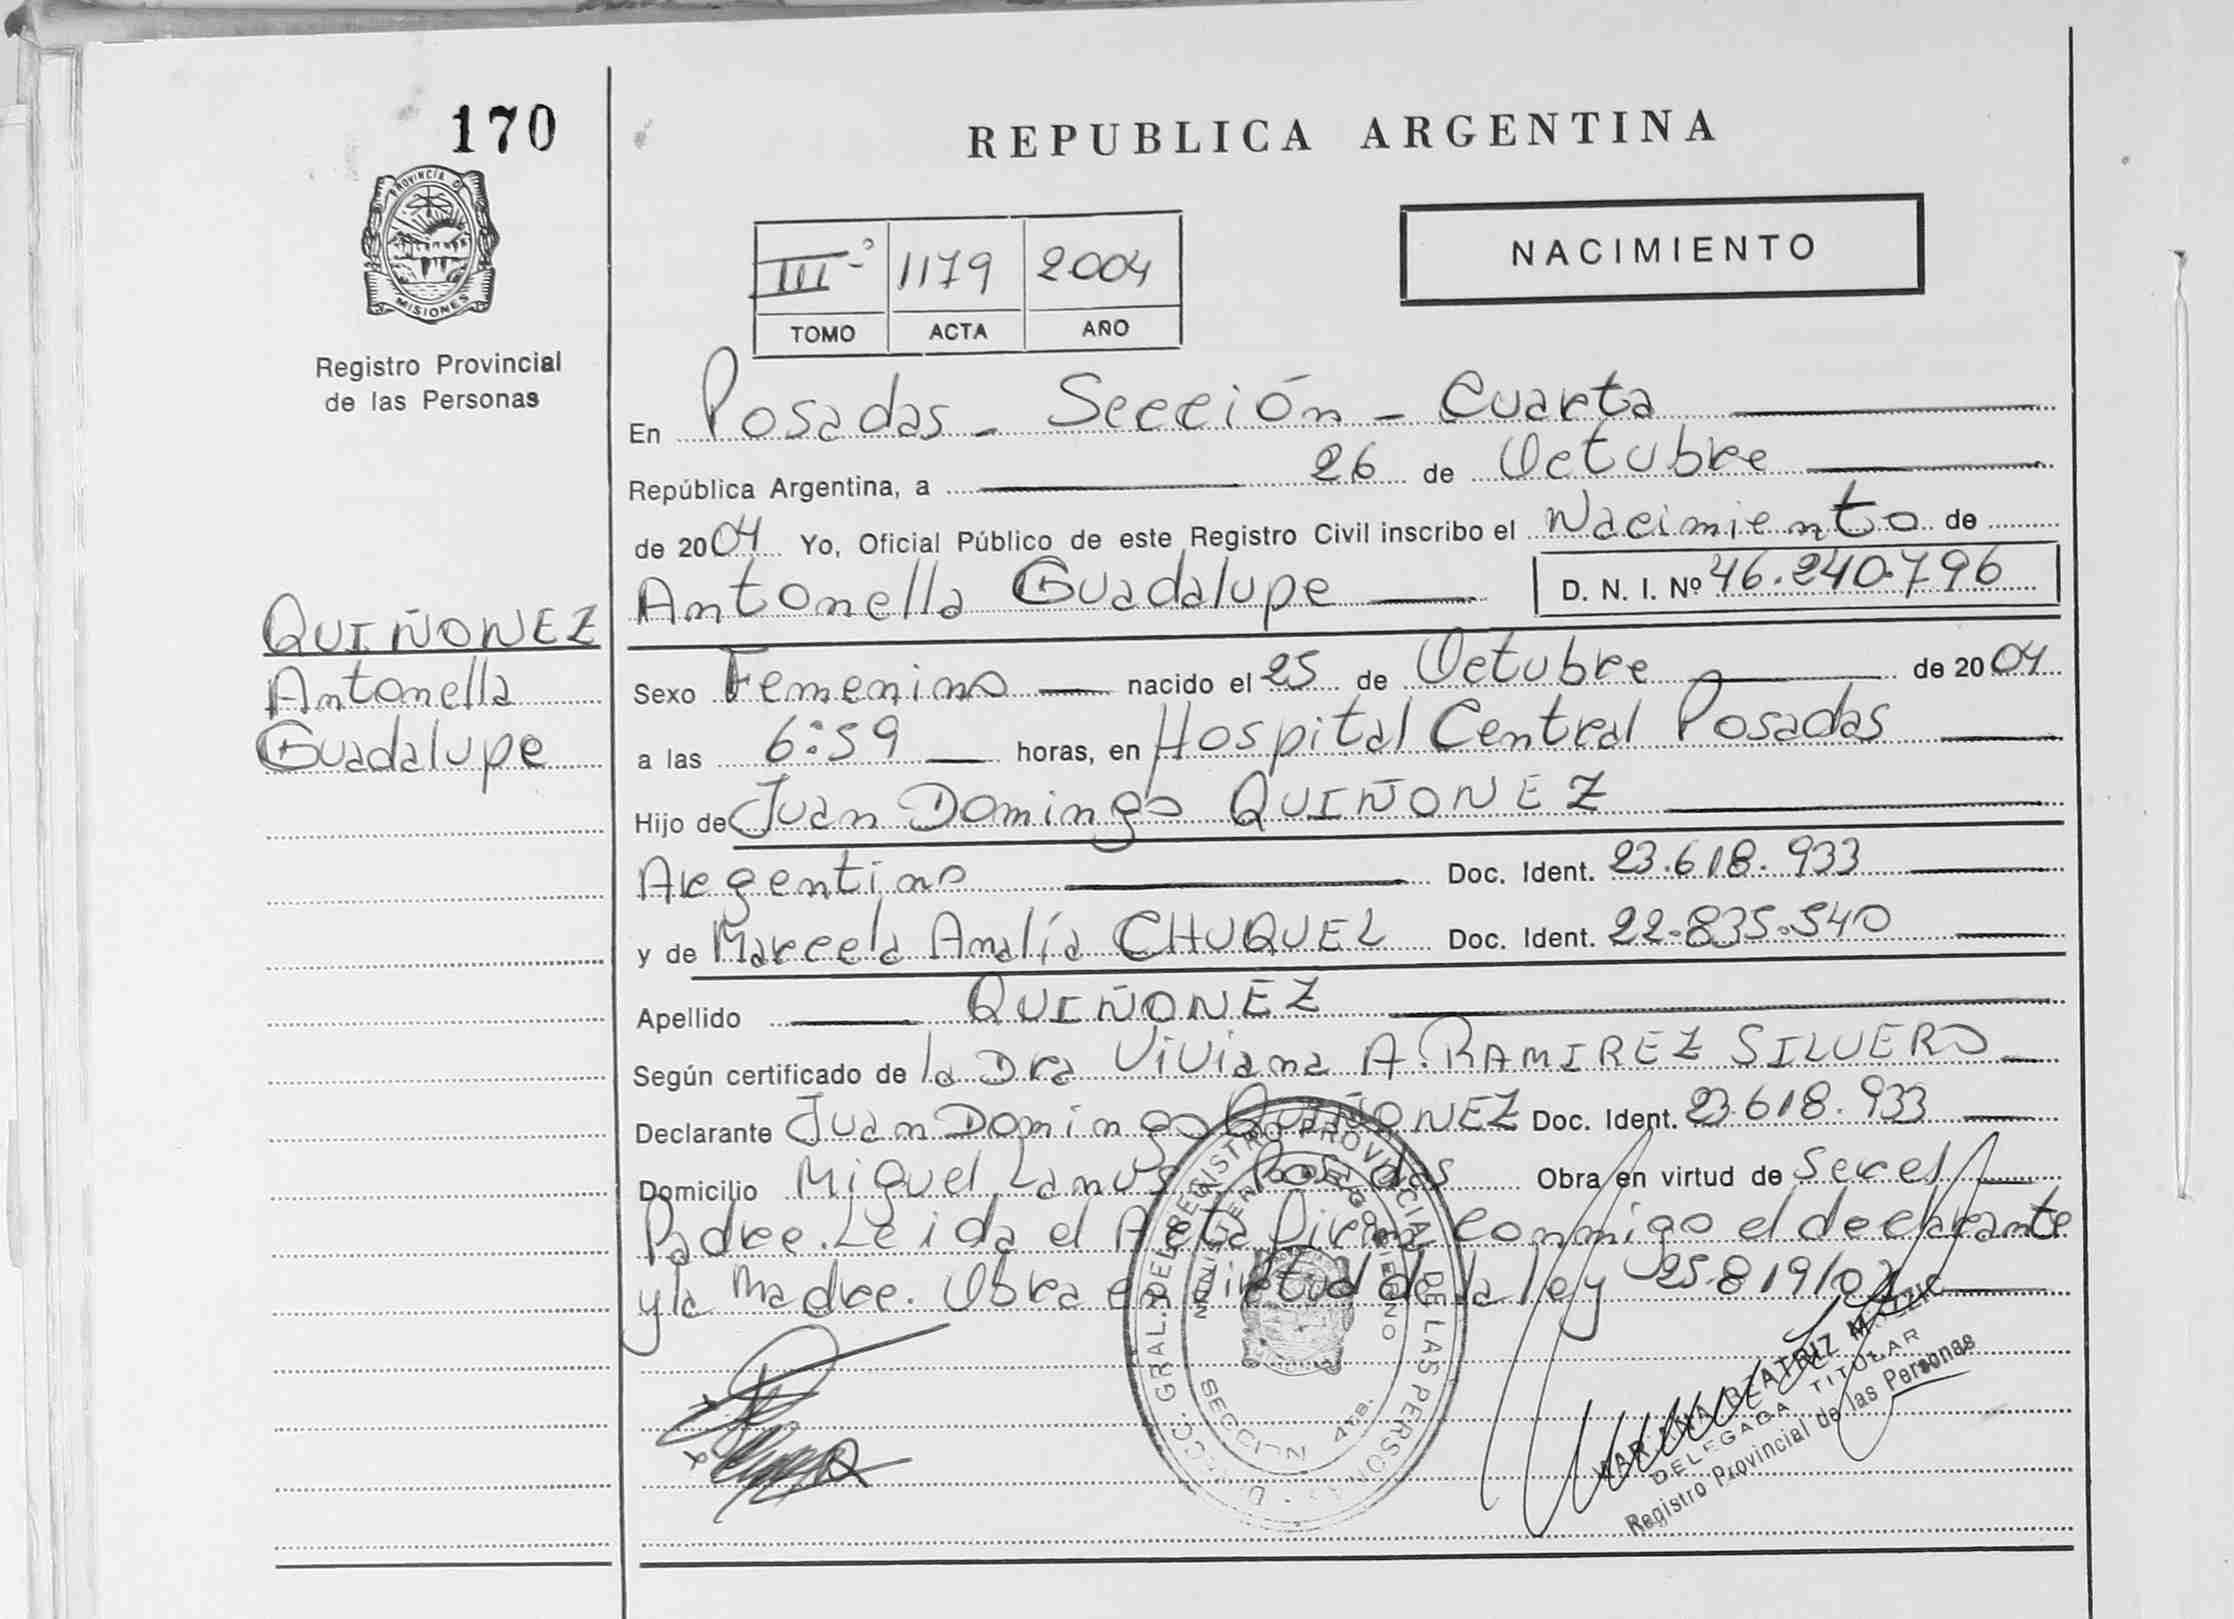 170
REPUBLICA ARGENTINA
PROVINCIA DE
MISIONES
Registro Provincial
de las Personas
III° 1179 2004
TOMO ACTA AÑO
NACIMIENTO
En Posadas - Sección - Cuarta
República Argentina, a 26 de Octubre
de 2004 Yo, Oficial Público de este Registro Civil inscribo el Nacimiento de
Antonella Guadalupe D. N. I. Nº 46.240.796
QUIÑONEZ
Antonella
Guadalupe
Sexo Femenino nacido el 25 de Octubre de 2004
a las 6:59 horas, en Hospital Central Posadas
Hijo de Juan Domingo QUIÑONEZ
Argentino Doc. Ident. 23.618.933
y de Marcela Analía CHUQUEL Doc. Ident. 22.835.540
Apellido QUIÑONEZ
Según certificado de la Dra Viviana A. RAMIREZ SILVERO
Declarante Juan Domingo QUIÑONEZ Doc. Ident. 23.618.933
Domicilio Miguel Lanus Posadas Obra en virtud de ser el
Padre. Leida el Acta firma conmigo el declarante
y la madre. Obra en virtud de la ley 25.819/03
DIRECC. GRAL. DEL REGISTRO PROVINCIAL DE LAS PERSONAS
MINISTERIO DE GOBIERNO
SECCION 4TA.
MARIANA BEATRIZ
DELEGADA TITULAR
Registro Provincial de las Personas